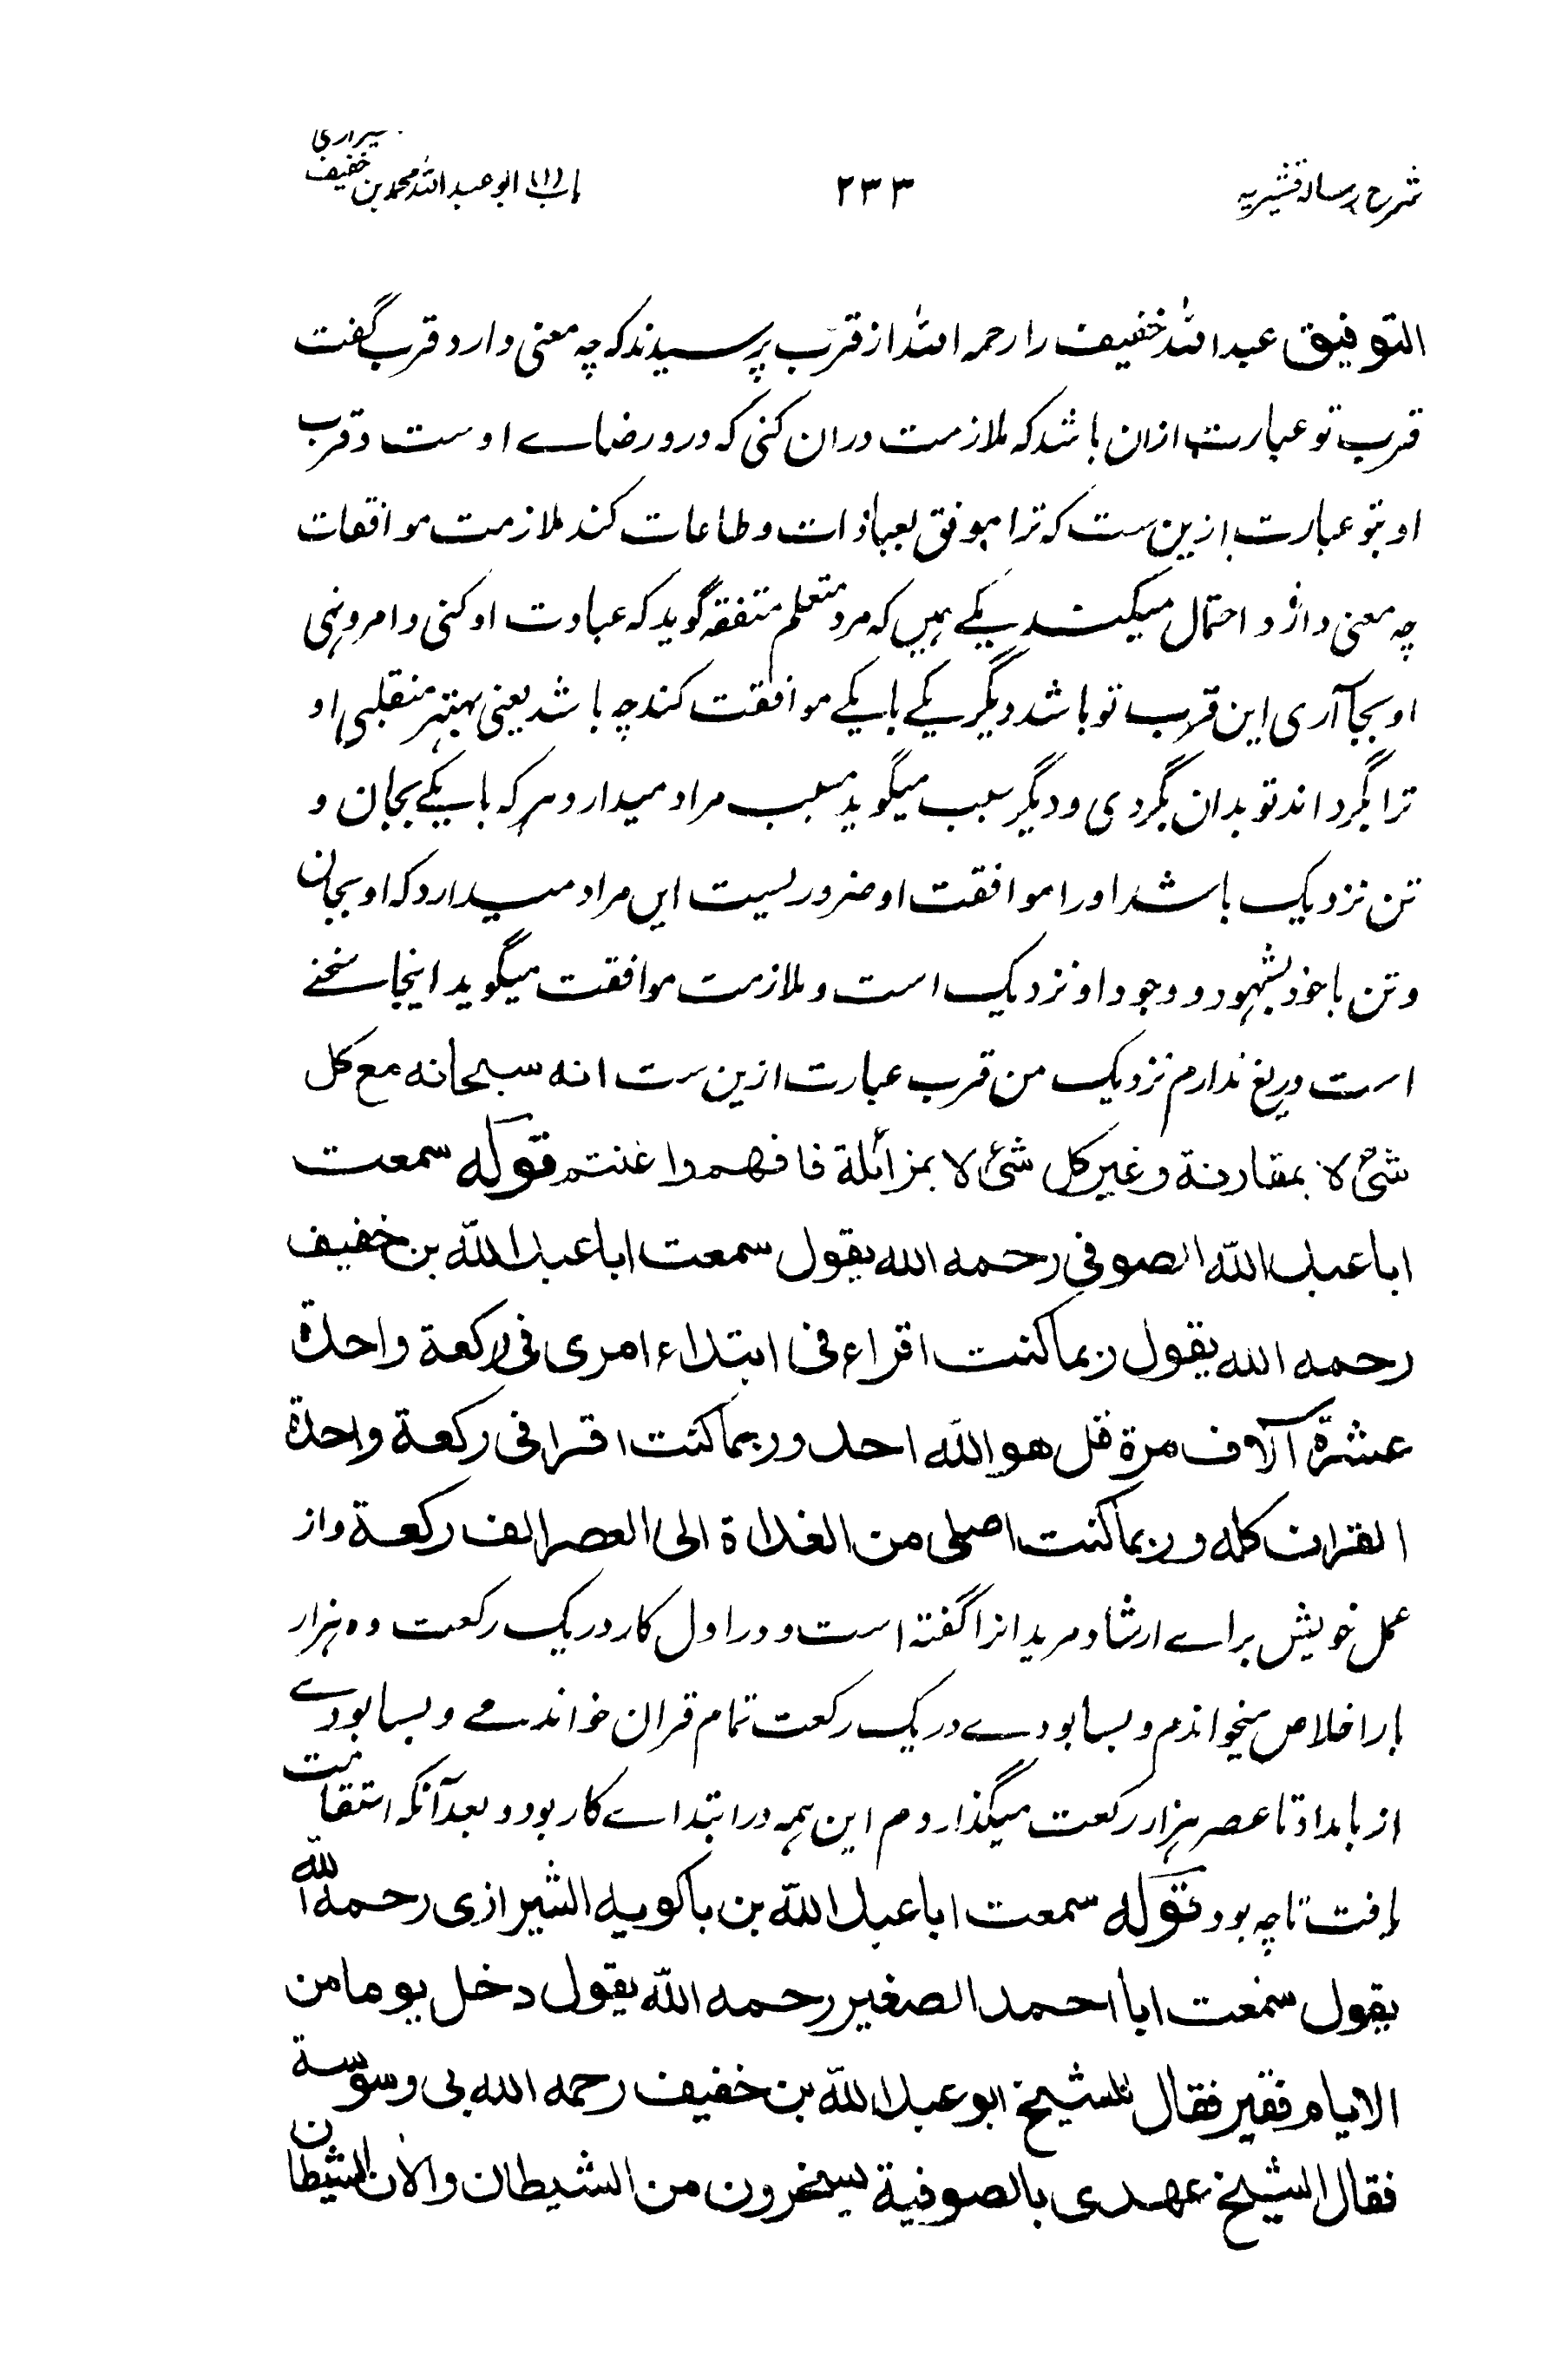 شرح رسالهٔ قشیریه ۲۳۳ باب (۱) ابو عبد الله محمد بن خفیف شیرازی
التوفیق عبد الله خفیف را رحمه الله از قرب پرسیدند که چه معنی دارد قرب گفت
قرب تو عبارت ازان باشد که ملازمت دران کنی که درو رضاے اوست و قرب
او بتو عبارت ازین ست که ترا موفق بعبادات و طاعات کند ملازمت موافقات
چه معنی دارد و احتمال میکند یکے ہمیں که مرد متعلم متفقه گوید که عبادت او کنی و امر و نہی
او بجا آری این قرب تو باشد دیگر یکے با یکے موافقت کند چه باشد یعنی بهتر منقلبی او
ترا گرداند تو بدان گردی و دیگر سبب میگوید مسبب مراد میدارد و هر که با یکے بجان و
تن نزدیک باشد او را موافقت او ضروریست ایں مراد میدارد که او بجان
و تن باخود بشهود و وجود او نزدیک است و ملازمت موافقت میگوید اینجا سخنے
است دریغ ندارم نزدیک من قرب عبارت ازین ست انه سبحانه مع كل
شئ لا بمقارنة وغير كل شئ لا بمزائلة فافهموا غنتم قوله سمعت
ابا عبد الله الصوفى رحمه الله يقول سمعت ابا عبد الله بن خفيف
رحمه الله يقول ربما كنت اقراء فى ابتداء امرى فى ركعة واحدة
عشرة آلاف مرة قل هو الله احد وربما كنت اقرا فى ركعة واحدة
القران كله وربما كنت اصلى من الغداة الى العصر الف ركعة و از
عمل خویش براے ارشاد مریدانرا گفته است و در اول کار در یک رکعت ده ہزار
بار اخلاص میخواندم و بسا بودے در یک رکعت تمام قران خواندمے و بسا بودے
از بامداد تا عصر ہزار رکعت میگذاردم این ہمه در ابتداے کار بود و بعد آنکه استقامت
یافت تا چه بود قوله سمعت ابا عبد الله بن باكويه الشيرازى رحمه الله
يقول سمعت ابا احمد الصغير رحمه الله يقول دخل يوما من
الايام فقير فقال للشيخ ابو عبد الله بن خفيف رحمه الله بى وسوسة
فقال الشيخ عهدى بالصوفية يسخرون من الشيطان والان الشيطان